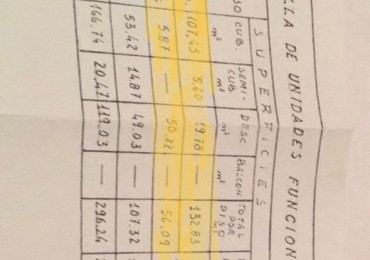 LLA DE UNIDADES FUNCION
SUPERFICIES
SO CUB. SEMI-CUB DESC BALCON TOTAL POR PISO
m² m² m² m² m²
107,45 5.20 19.18 — 132.83
5.87 — 50.22 — 56,09
53.42 14.87 49.03 — 107.32
166.74 20.47 119.03 — 296.24